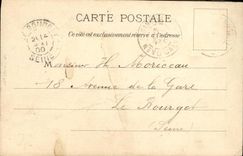 CARTE POSTALE
Ce côté est exclusivement réservé à l'adresse
Monsieur H. Moriceau
18 Avenue de la Gare
Le Bourget
Seine